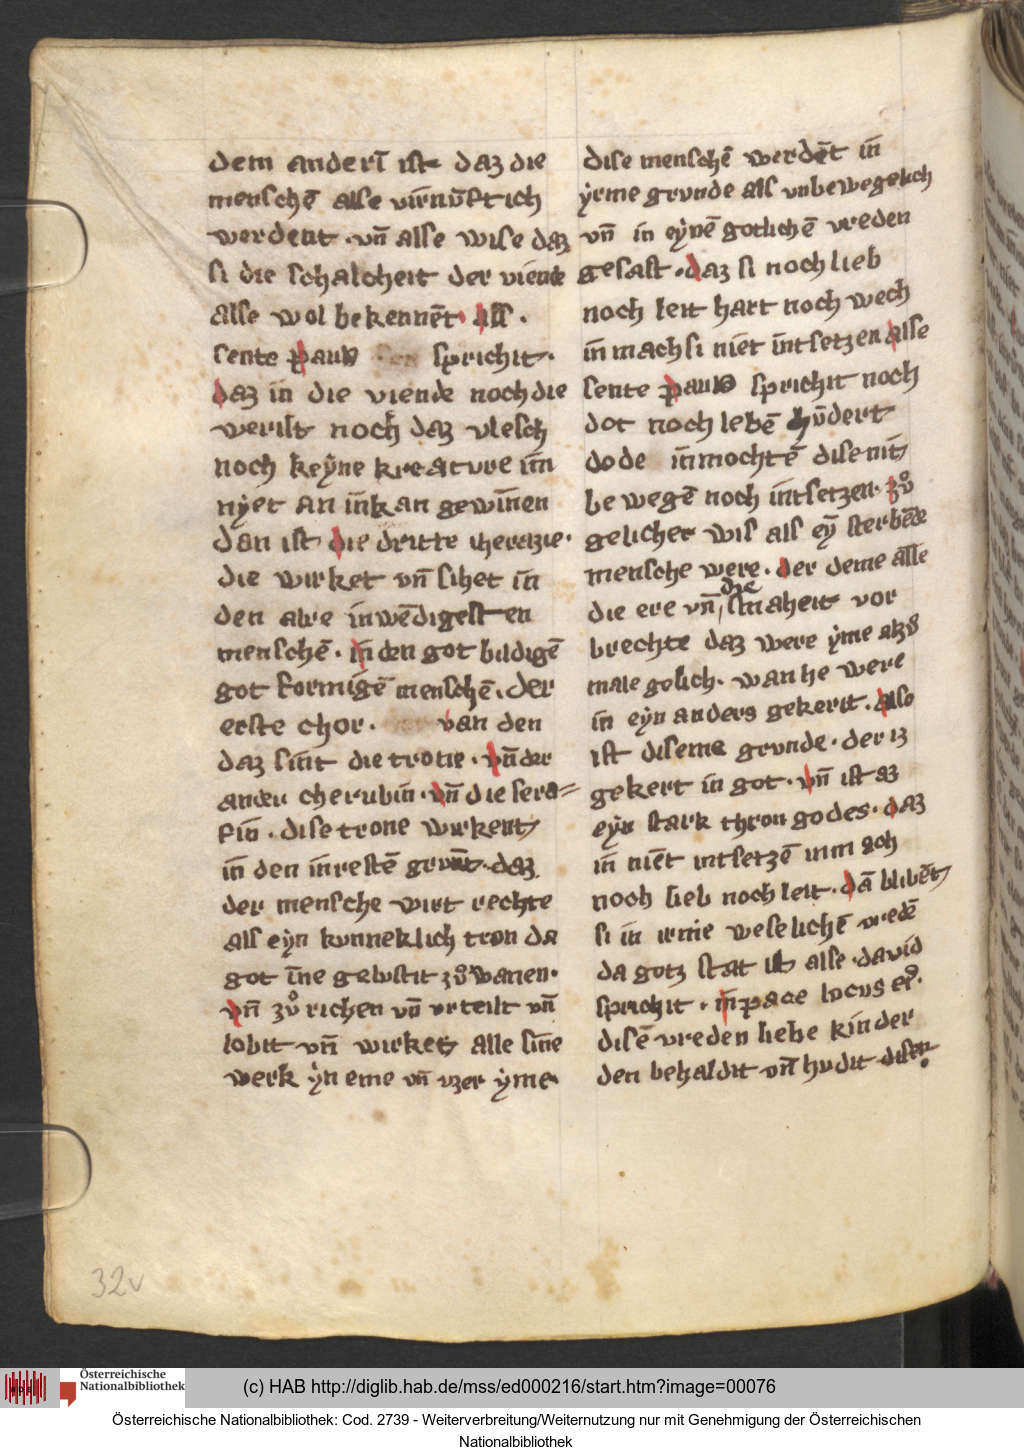 dem anderī ist daz die
menschē alse virnūftich
werdent · vn̄ alse wise daz
si die schalcheit der viende
alse wol bekennēt · als ·
sente paulꝰ sprichit ·
daz in die viende noch die
werilt noch daz vlesch
noch keẏne kreature im̄
nẏet an in̄kan gewin̄en
dan ist die dritte iherarzie ·
die wirket vn̄ sihet in
den alre inwēdigesten
menschē · in den got bildigē
got formigē menschē · der
erste chor · van den
daz sint die trone · vn̄ der
ander cherubin · vn̄ die sera=
fin · dise trone wirkent
in den inrestē grunt · daz
der mensche wirt rechte
als eẏn kunneklich tron da
got īne gelustit zuͦ wanen ·
vn̄ zuͦ richen vn̄ vrteilt vn̄
lobit vn̄ wirket alle sine
werk ẏn eme vn̄ vzer ẏme ·
dise menschē werdēt in
ẏrme grunde als vnbewegelich
vn̄ in eẏnē gotlichē vreden
gesast · daz si noch lieb
noch leit hart noch wech
in mach si niet intsetzen alse
sente paulꝰ sprichit noch
dot noch lebē hūdert
dode inmochtē dise nit
bewegē noch intsetzen · zuͦ
gelicher wis als eẏ̄ sterbēde
mensche were · der deme alle
die ere vn̄ die smaheit vor
brechte daz were ẏme alzuͦ
male gelich · wan he were
in eẏn anders gekerit · also
ist diseme grunde · der iz
gekert in got · vn̄ ist az
eẏn stark thron godes · daz
in niēt intsetzē in mach
noch lieb noch leit · dā blibēt
si in irme weselichē vredē
da gotz stat ist alse · david
sprichit · in pace locus eiꝰ ·
disē vreden liebe kinder
den behaldit vn̄ hudit disen
32v
Österreichische
Nationalbibliothek
(c) HAB http://diglib.hab.de/mss/ed000216/start.htm?image=00076
Österreichische Nationalbibliothek: Cod. 2739 - Weiterverbreitung/Weiternutzung nur mit Genehmigung der Österreichischen
Nationalbibliothek